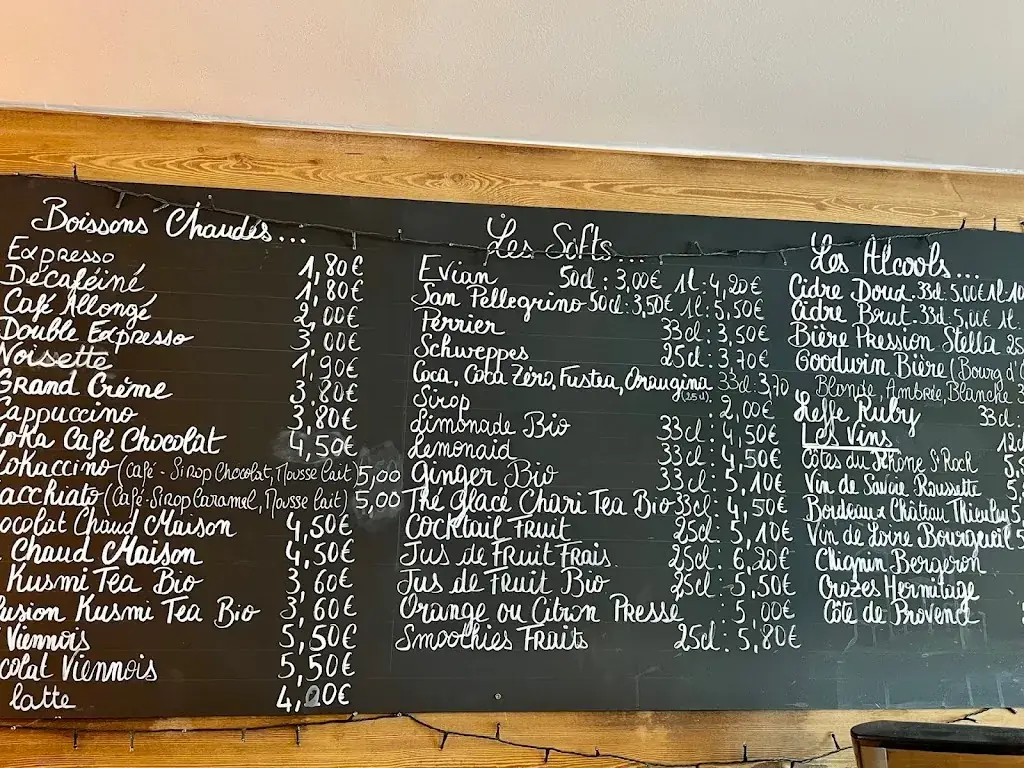 Boissons Chaudes...
Expresso 1,80€
Décaféiné 1,80€
Café Allongé 2,00€
Double Expresso 3,00€
Noisette 1,90€
Grand Crème 3,80€
Cappuccino 3,80€
oka Café Chocolat 4,50€
okaccino (café - Sirop Chocolat, Mousse lait) 5,00
acchiato (café-Sirop Caramel, Mousse lait) 5,00
ocolat Chaud Maison 4,50€
Chaud Maison 4,50€
Kusmi Tea Bio 3,60€
usion Kusmi Tea Bio 3,60€
Viennois 5,50€
colat Viennois 5,50€
latte 4,20€
Les Softs....
Evian 50cl : 3,00€ 1l : 4,20€
San Pellegrino 50cl : 3,50€ 1l : 5,50€
Perrier 33cl : 3,50€
Schweppes 25cl : 3,70€
Coca, Coca Zéro, Fustea, Oraugina (25cl) 33cl 3,70
Sirop : 2,00€
Limonade Bio 33cl : 4,50€
Lemonaid 33cl : 4,50€
Ginger Bio 33cl : 5,10€
Thé Glacé Chari Tea Bio 33cl : 4,50€
Cocktail Fruit 25cl : 5,10€
Jus de Fruit Frais 25cl : 6,20€
Jus de Fruit Bio 25cl : 5,50€
Orange ou Citron Presse : 5,00€
Smoothies Fruits 25cl : 5,80€
Les Alcools...
Cidre Doux . 33cl : 5,00€ 1l : 10
Cidre Brut . 33cl . 5,00€ 1l .
Bière Pression Stella 25
Goodwin Bière (Bourg d'
Blonde, Ambrée, Blanche 3
Leffe Ruby 33cl :
Les Vins 12c
Côtes du Rhône St Roch 5,
Vin de Savoie Roussette 5,
Bordeaux Château Thieuley 5,
Vin de Loire Bourgueil 5
Chignin Bergeron
Crozes Hermitage
Côte de Provence